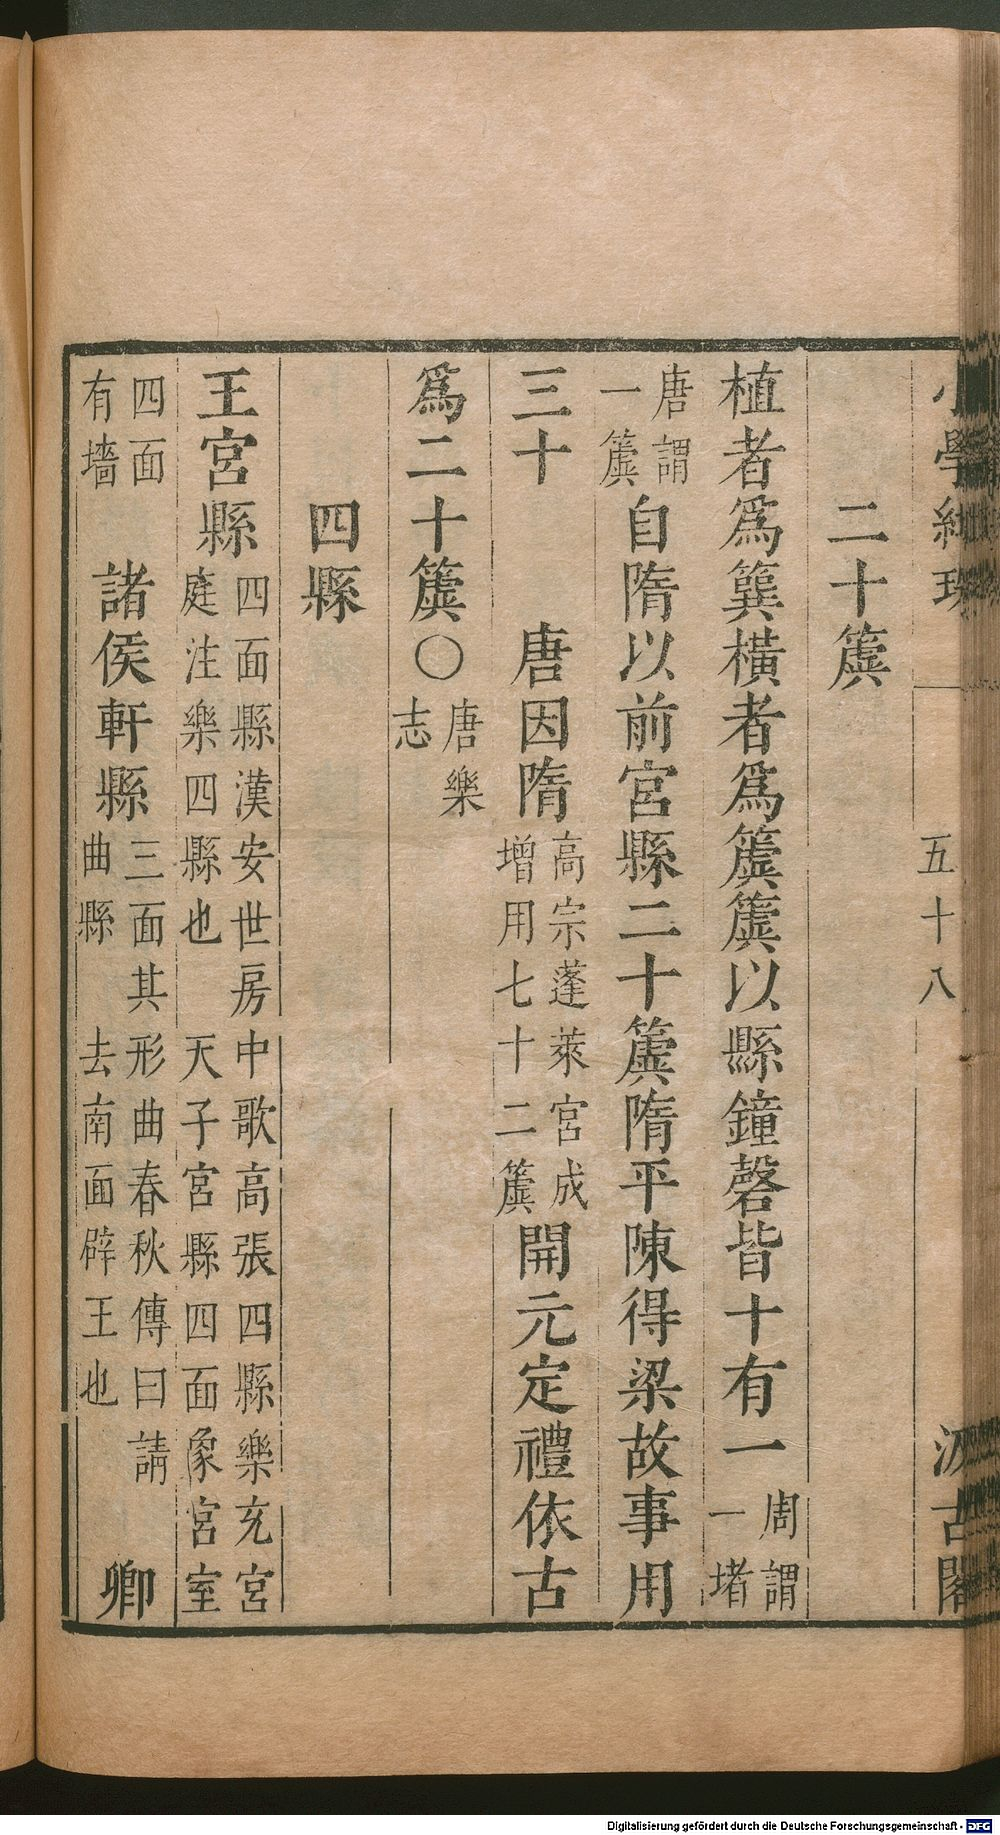 小學紺珠 五十八 汲古閣
二十簴
植者爲簨橫者爲簴簴以縣鐘磬皆十有一周謂一堵
唐謂一簴自隋以前宮縣二十簴隋平陳得梁故事用
三十 唐因隋高宗蓬萊宮成增用七十二簴開元定禮依古
爲二十簴〇唐樂志
四縣
王宮縣四面縣漢安世房中歌高張四縣樂充宮庭注樂四縣也 天子宮縣四面象宮室
四面有墻 諸侯軒縣三面其形曲春秋傳曰請曲縣 去南面辟王也 卿
Digitalisierung gefördert durch die Deutsche Forschungsgemeinschaft - DFG